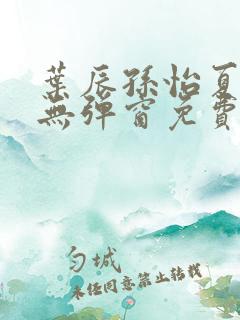 葉辰孫怡夏
無彈窗免費
勻城
未经同意禁止转载